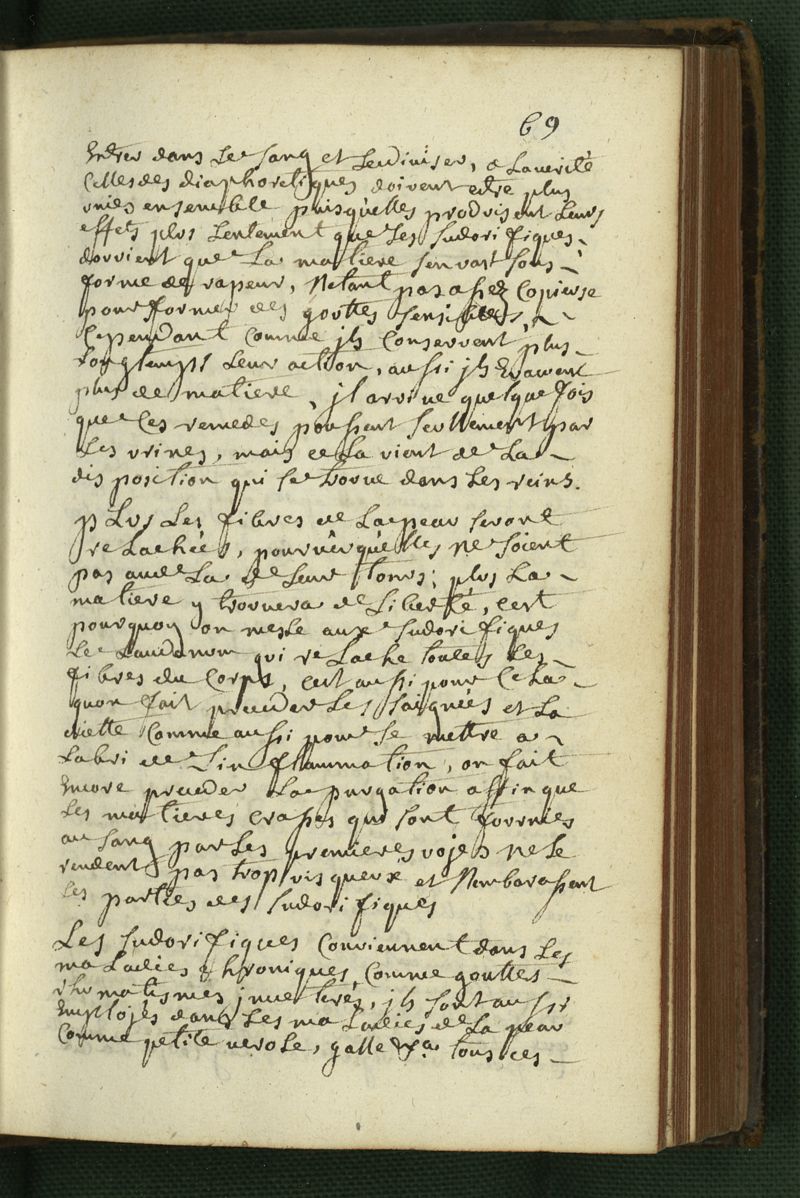 69
Entrer dans le sang et le diviser, a la verité
Celles des diaphoretiques doivent estre plus
unies ensemble puisquelles produisent leurs
effets plus lentement que les sudorifiques
dou vient que la matiere sen vat sous
forme de vapeur, Netant pas assez Copieuse
pour former des gouttes sensibles,
Cependant Comme jls Conservent plus
longtemps leur action, aussi jls Evacuent
plus de matiere, jl arrive quelque fois
que les remedes poussent seullement par
les urines, mais cela vient de la
disposition qui se trouve dans les reins.
plus les fibres de la peau seront
relachées, pourvu quelles ne soient
pas au dela de leur tons; plus la
matiere y trouvera de liberté, cest
pourquoy on mesle aux sudorifiques
le laudanum qui relache toutes les
fibres du Corps, cest aussi pour Cela
quon fait preceder les saignées et la
diette Comme aussi pour se mettre a
labri de linflammation, on fait
Encore preceder la purgation affin que
les matieres crasses qui sont fournies
au sang par les premieres vojes ne le
rendent pas trop visqueux et Nembarassent
les parties des sudorifiques
Les sudorifiques Conviennent dans les
maladies Chroniques, Comme gouttes
rhumatismes jnveterés, jls sont aussi
Employés dans les maladies de la peau
Comme petite verole, galle &a tous ces